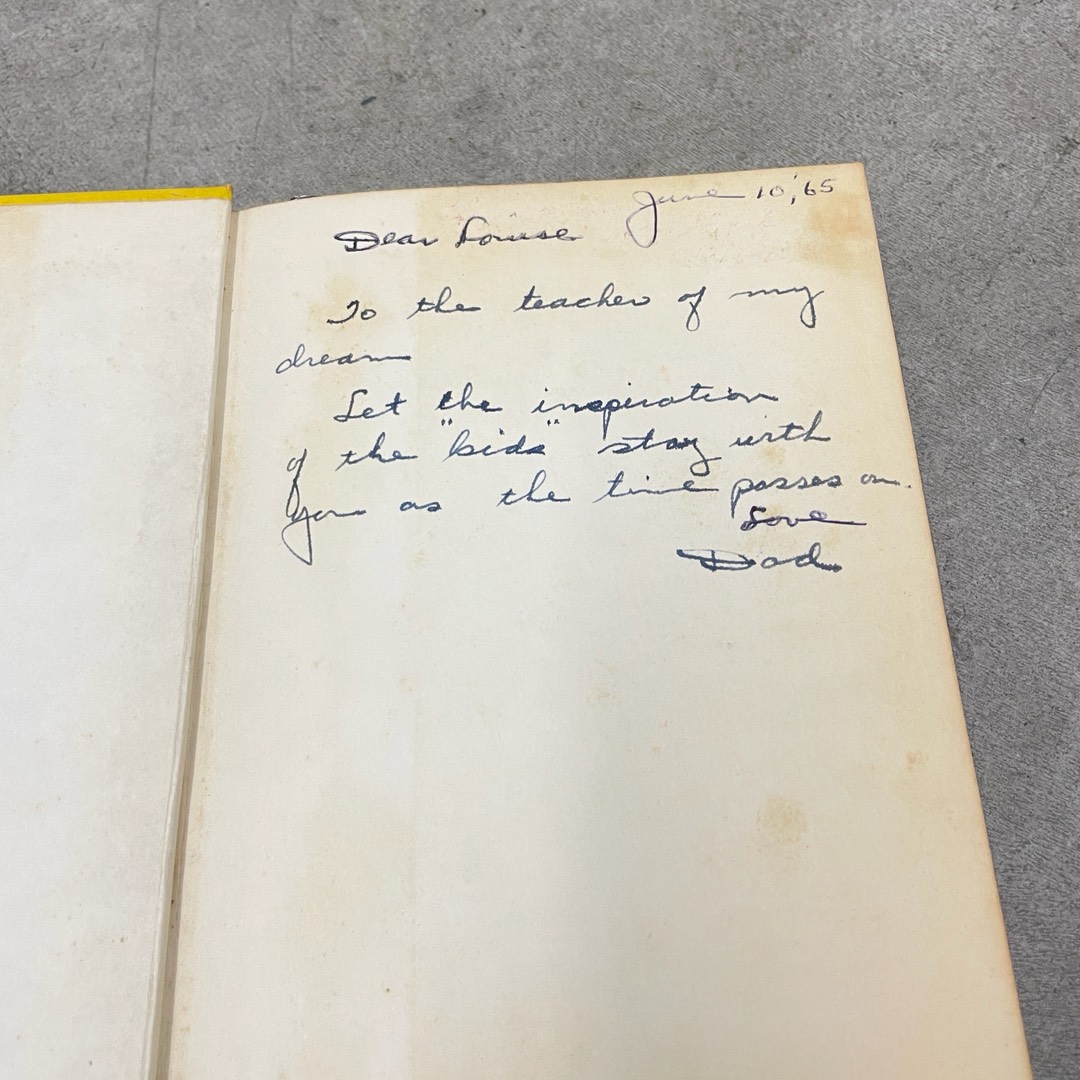 June 10, '65
Dear Louise
To the teacher of my
dream
Let the inspiration
of the "kids" stay with
you as the time passes on.
Love
Dad